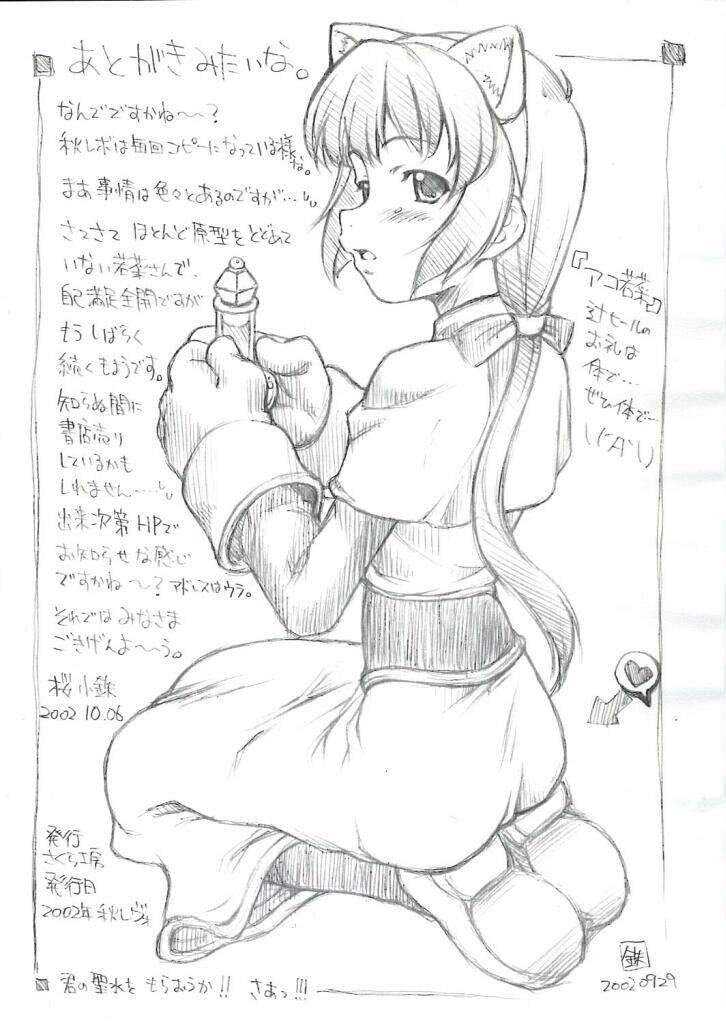 あとがきみたいな。
なんでですかね〜〜？
秋レボは毎回コピーになっている様な。
まあ事情は色々とあるのですが…
さてさて ほとんど原型をとどめて
いない若菜さんで、
自己満足全開ですが
もうしばらく
続くもようです。
知らぬ間に
書店売り
しているかも
しれません……
出来次第HPで
お知らせな感じ
ですかね〜〜？アドレスはウラ。
それではみなさま
ごきげんよ〜〜う。
桜小鉄
2002.10.06
発行
さくら工房
発行日
2002年 秋レヴォ
『アコ若菜』
辻ヒールの
お礼は
体で…
ぜひ体で…
君の聖水を もらおうか!! さあっ!!!
20020929